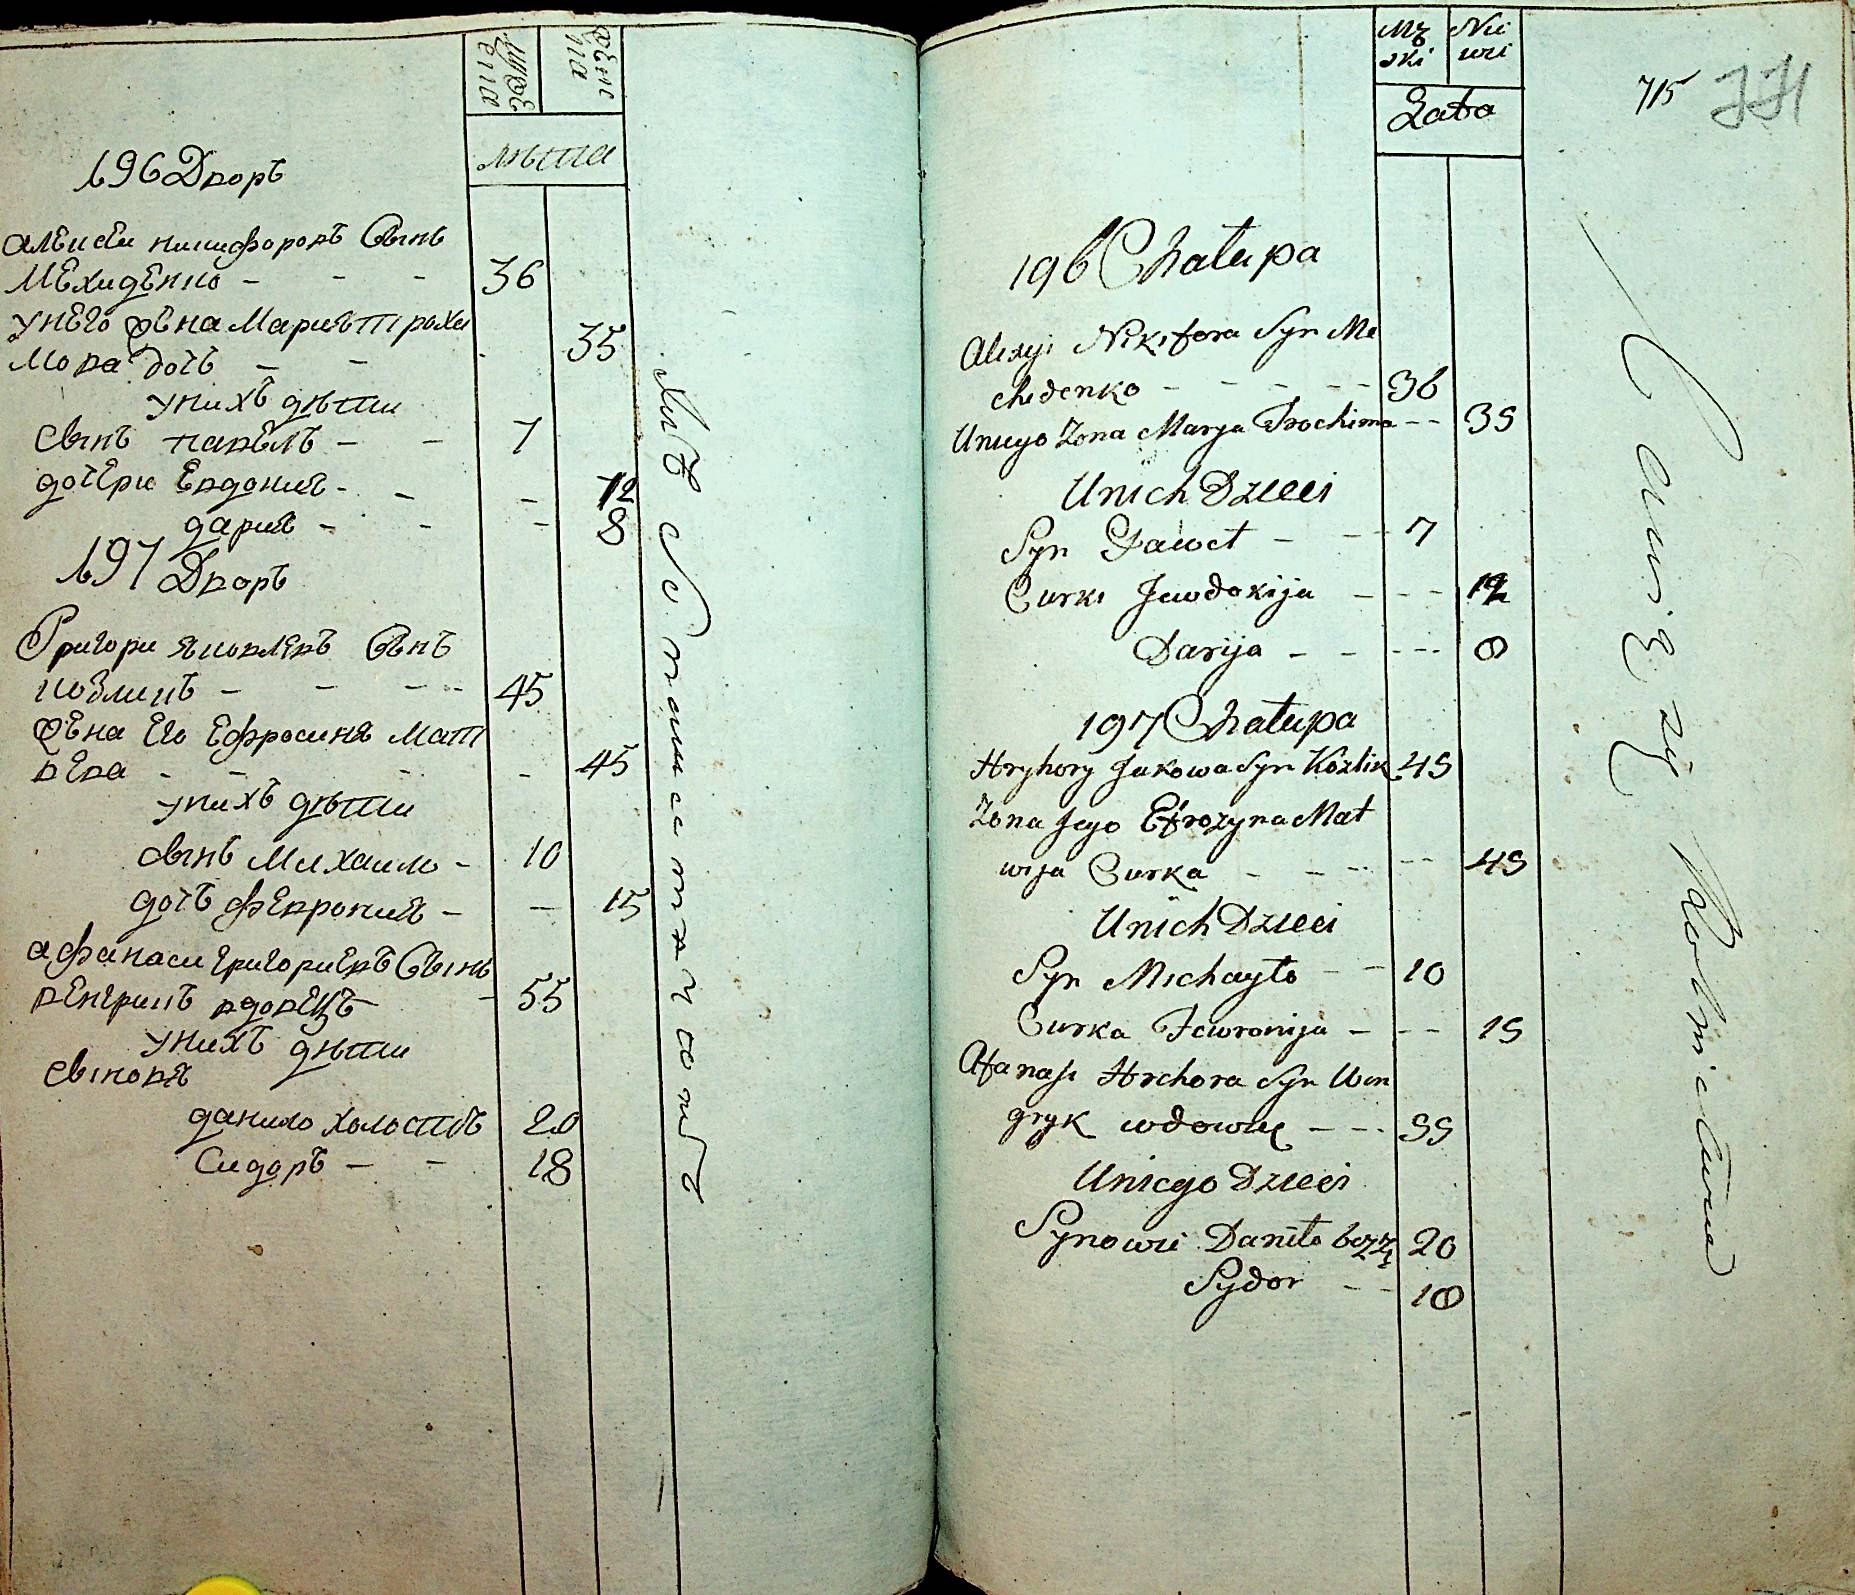 мужеска
женска
лѣта
196 Дворъ
алексеи никифоровъ Сынъ
Мехиденко - - - 36
унего жена Мария трохи
мова дочь - - 35
унихъ дѣти
Сынъ павелъ - - 7
дочери Евдокия - - - 12
дария - - - 8
197 Дворъ
Григори яковлевъ Сынъ
козликъ - - - - 45
жена Его Ефросиня Мат
вева - - - - 45
унихъ дѣти
сынъ Михаило - 10
дочь феврония - - 15
афанаси григориевъ Сынъ
венгрикъ вдовецъ - 55
унихъ дѣти
сыновя
данило холостъ 20
Сидоръ - - 18
Męski
Niewi
Lata
715
196 Chałupa
Alexyi Nikifora Syn Me
chedenko - - - - - 36
Uniego Żona Marya Trochima - - 35
Unich Dzieci
Syn Paweł - - - 7
Curki Jewdokija - - - 12
Darija - - - - - 8
197 Chałupa
Hryhory Jakowa Syn Kozlik 45
Żona Jego Efrozyna Mat
wija Curka - - - - - 45
Unich Dzieci
Syn Michayło - - 10
Curka Fewronija - - - 15
Afanasi Hrehora Syn Wen
gryk wdowiec - - - 55
Uniego Dzieci
Synowie Daniło bezż 20
Sydor - - 18